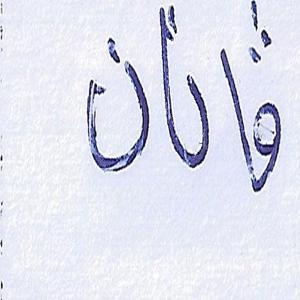 قاتان